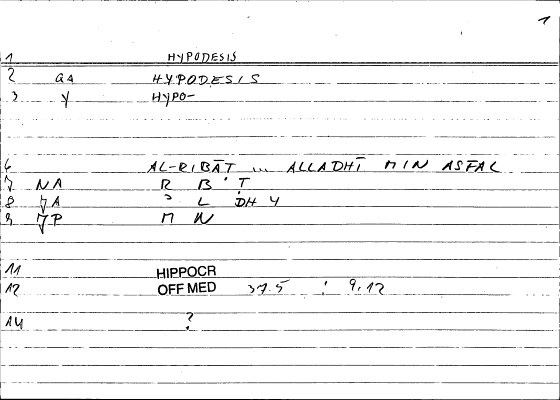 1
1 HYPODESIS
2 aa HYPODESIS
3 y HYPO-
6 AL-RIBĀṬ ... ALLADHĪ MIN ASFAL
7 NA R B ' Ṭ
8 JA ʾ L ḎH Y
9 JP M N
11 HIPPOCR
12 OFF MED 37.5 : 9,12
14 ?